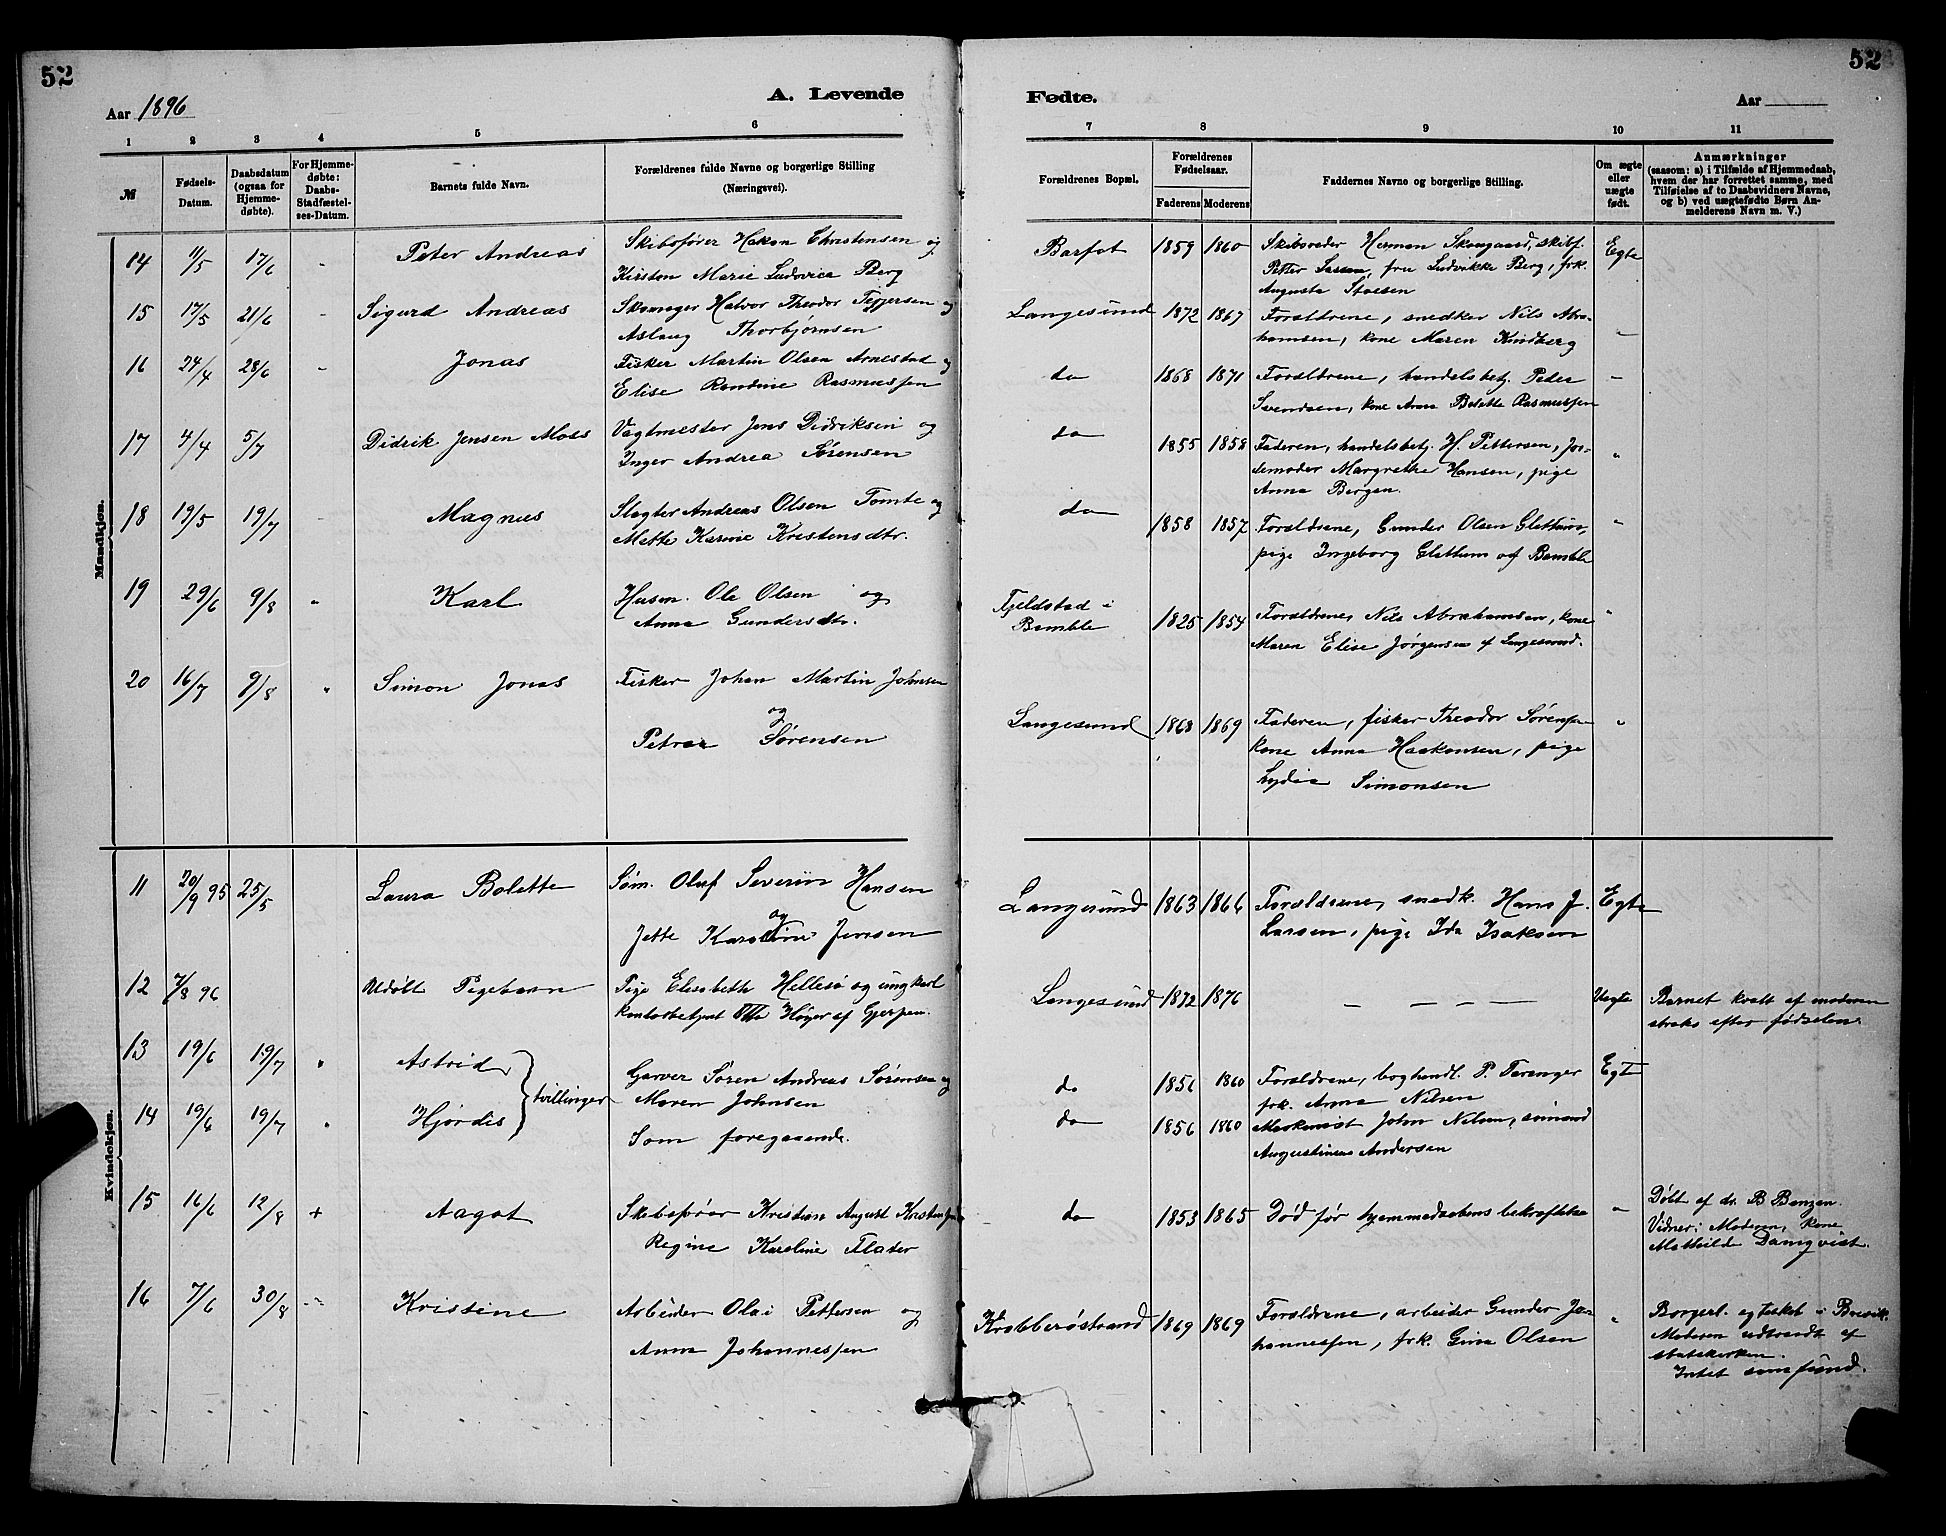 52
52
Aar 1896
A. Levende
Fødte.
Aar
1 2 3 4 5 6 7 8 9 10 11
№
Fødsels-Datum.
Daabsdatum (ogsaa for Hjemmedøbte).
For Hjemmedøbte: Daabs-Stadfæstelses-Datum.
Barnets fulde Navn.
Forældrenes fulde Navne og borgerlige Stilling (Næringsvei).
Forældrenes Bopæl.
Forældrenes Fødselsaar.
Faderens Moderens
Faddernes Navne og borgerlige Stilling.
Om ægte eller uægte født.
Anmærkninger
(saasom: a) i Tilfælde af Hjemmedaab, hvem der har forrettet samme, med Tilføielse af to Daabsvidners Navne, og b) ved uægtefødte Børn Anmelderens Navn m. V.)
Mandkjøn.
14 11/5 17/6 - Peter Andreas Skibsfører Hakon Christensen og
Kirsten Marie Ludovica Berg
Barfot 1859 1860 Skibsreder Herman Skougaard, skibsf.
Petter Larsen, fru Ludvikke Berg, frk.
Augusta Stoesen
Egte
15 17/5 21/6 - Sigurd Andreas Skomager Halvor Theodor
Aslaug Thorbjørnsen
Langesund 1872 1867 Forældrene, snedker Nils Abra-
hamsen, kone Maren Kindberg
-
16 24/4 28/6 - Jonas Fisker Martin Olsen Arnestad og
Elise Randine Rasmussen
do 1868 1871 Forældrene, handelsbetj. Peder
Svendsen, kone Anna Bolette Rasmussen
-
17 4/4 5/7 Didrik Jensen Moss Vagtmester Jens Didriksen og
Inger Andrea Sørensen
do 1855 1858 Faderen, handelsbetj. H. Pettersen, jor-
demoder Margrethe Hansen, pige
Anna Bergan.
"
18 19/5 19/7 - Magnus Slagter Andreas Olsen Tomte og
Mette Karine Kristensdtr.
do 1858 1857 Forældrene, Gunder Olsen Glittum,
pige Ingeborg Glittum af Bamble
"
19 29/6 9/8 " Karl Husm. Ole Olsen og
Anna Gundersdtr.
Fjeldstad i
Bamble 1825 1854 Forældrene, Nils Abrahamsen, kone
Maren Elise Jørgensen af Langesund.
"
20 16/7 9/8 " Simon Jonas Fisker Johan Martin Johnsen
og
Petra Sørensen
Langesund 1868 1869 Faderen, fisker Theodor Sørensen
kone Anna Haakonsen, pige
Lydia Simonsen
"
Kvindekjøn.
11 20/9 95 25/5 Laura Bolette Søm. Oluf Severin Hansen
og
Jette Karoline Jensen
Langesund 1863 1866 Forældrene, snedk. Hans J.
Larsen, pige Ida Isaksen
Egte
12 7/8 96 Udøbt Pigebarn Pige Elisabeth Hellesø og ungkarl
kontorbetjent Otto Høyer af Gjerpen.
Langesund 1872 1876 - - - - Uegte Barnet kvalt af moderen
straks efter fødselen.
13 19/6 19/7 " Astrid
tvillinger
Garver Søren Andreas Sørensen og
Maren Johnsen
do 1856 1860 Forældrene, boghandl. P. Taranger
frk. Anna Nilsen
Egt
14 19/6 19/7 " Hjørdis Som foregaaende.
do 1856 1860 Maskinist John Nilsen, sømand
Augustinus Andersen
15 16/6 12/8 + Aagot Skibsfører Kristian August Kristensen
Regine Karoline Flater
do 1853 1865 Død før hjemmedaabens bekræftelse " Døbt af dr. B Benzen.
Vidner: Moderen, kone
Mathilde Damqvist.
16 7/6 30/8 Kristine Arbeider Olai Pettersen og
Anna Johannessen
Krabberøstrand 1869 1869 Forældrene, arbeider Gunder Jo-
hannessen, frk. Gina Olsen
" Borgerl. egtesket i Brevik.
Moderen udtraadt af
statskirken.
Intet samfund.